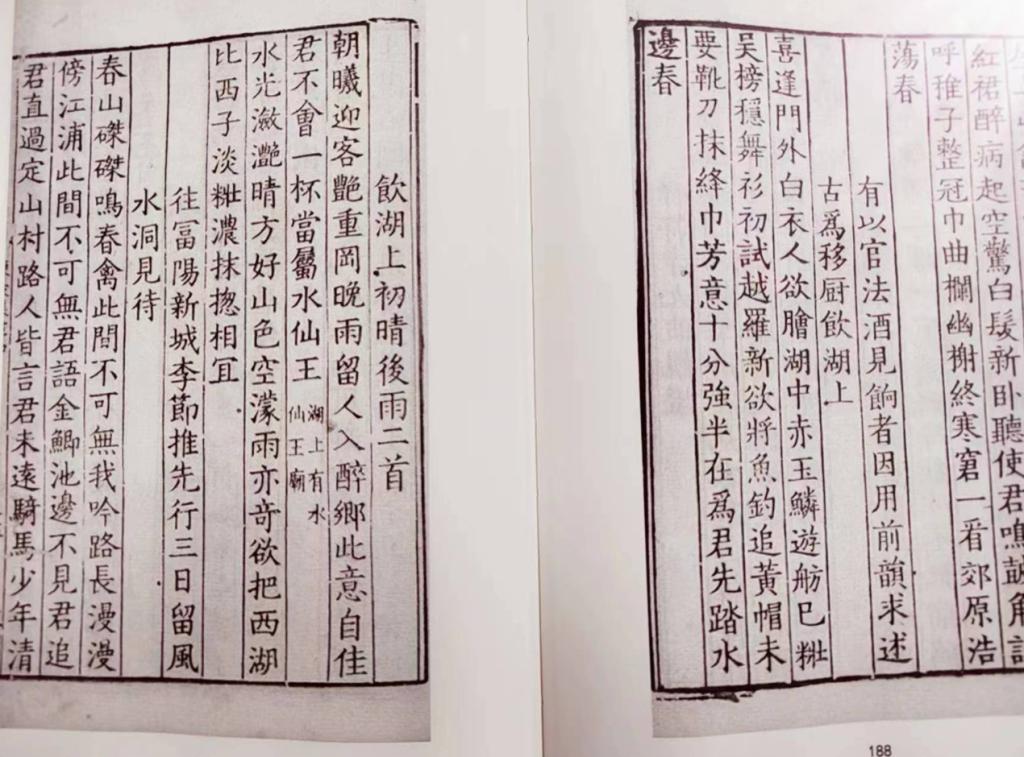 紅裙醉病起空驚白髮新卧聽使君鳴鼓角試
呼稚子整冠巾曲欄幽榭終寒窘一看郊原浩
蕩春
有以官法酒見餉者因用前韻求述
古爲移厨飲湖上
喜逢門外白衣人欲膾湖中赤玉鱗遊舫已糚
吳榜穩舞衫初試越羅新欲將魚釣追黃帽未
要靴刀抹絳巾芳意十分強半在爲君先踏水
邊春
188
飲湖上初晴後雨二首
朝曦迎客艷重岡晚雨留人入醉鄉此意自佳
君不會一杯當屬水仙王
湖上有水
仙王廟
水光瀲灩晴方好山色空濛雨亦竒欲把西湖
比西子淡糚濃抹揔相冝
往冨陽新城李節推先行三日留風
水洞見待
春山磔磔鳴春禽此間不可無我吟路長漫漫
傍江浦此間不可無君語金鯽池邊不見君追
君直過定山村路人皆言君未遠騎馬少年清